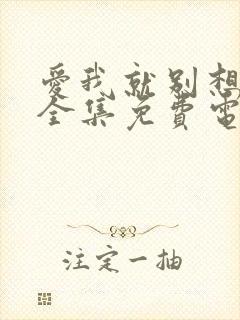 愛我就别想
全集免費電
注定一抽